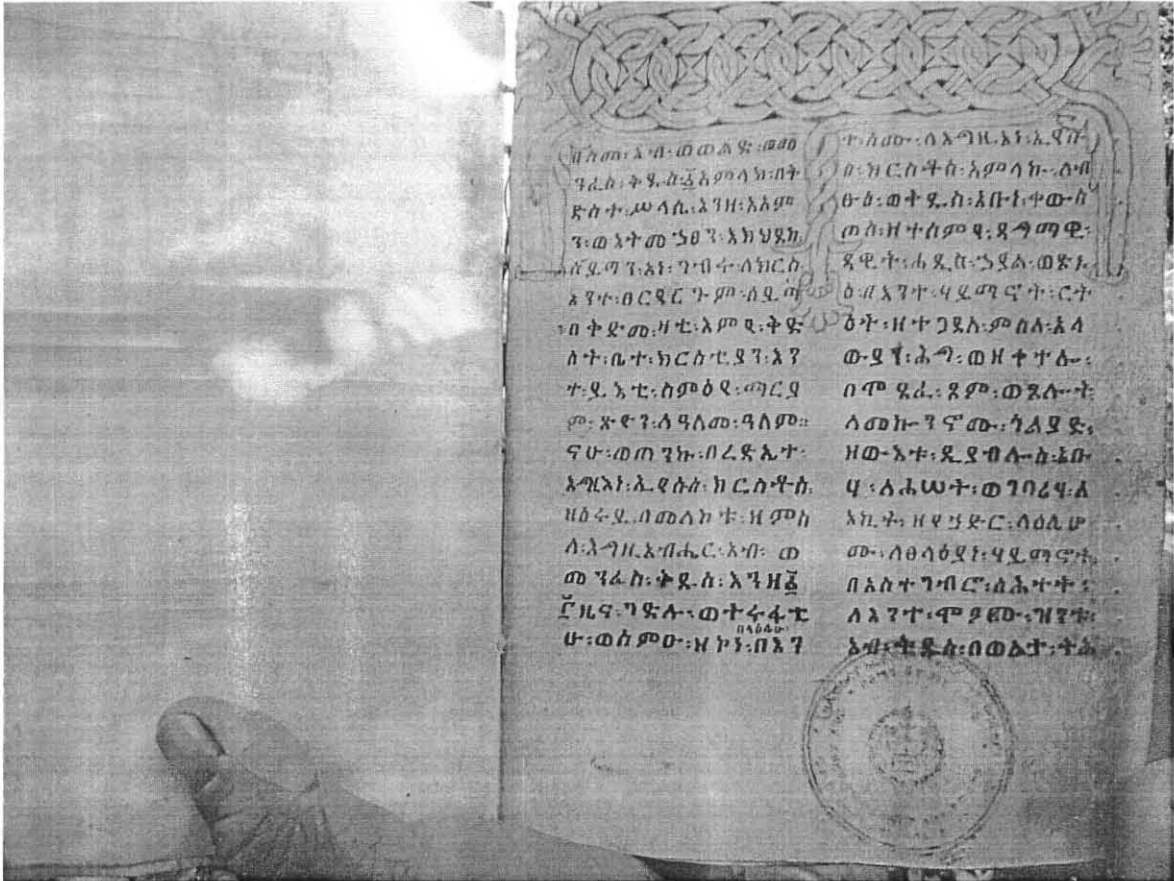 በስመ፡አብ፡ወወልድ፡ወመ
ንፈስ፡ቅዱስ፡፩አምላክ፡በት
ድስተ፡ሥላሴ፡እንዘ፡አአም
ን፡ወእትመኃፀን፡እክህደከ
ሰይጣን፡አነ፡ገብሩ፡ለክርስ
እንተ፡ፀርዳር ጉም፡ሰይጣ
በቅድመ፡ዛቲ፡እምየ፡ቅድ
ስት፡ቤተ፡ክርስቲያን፡እን
ተ፡ይእቲ፡ስምዕየ፡ማርያ
ም፡ጽዮን፡ለዓለመ፡ዓለም።
ናሁ፡ወጠንኩ፡በረድኤተ፡
እግዚእነ፡ኢየሱስ፡ክርስቶስ፡
ዘዕሩይ፡በመለኮቱ፡ዘምስ
ለ፡እግዚአብሔር፡አብ፡ ወ
መንፈስ፡ቅዱስ፡እንዘ፩
ዜና፡ገድሉ፡ወተሩፋቲ
ሁ፡ወሰምዑ፡ዘኮነ፡በላዕሌሁ፡በእን
ተ፡ስሙ፡ለእግዚእነ፡ኢየሱ
ስ፡ክርስቶስ፡አምላክ፡ለብ
ፁዕ፡ወቅዱስ፡አቡነ፡ቀውስ
ጦስ፡ዘተሰምየ፡ዳግማዊ፡
ዳዊት፡ሐዲስ፡ኃያል፡ወጽኑ
ዕ፡በእንተ፡ሃይማኖት፡ርት
ዕት፡ዘተጋደለ፡ምስለ፡አላ
ውያን፡ሕግ፡ወዘቀተሉ፡
በሞፄፈ፡ጾም፡ወጸሎት፡
ሳመኩንኖሙ፡ጎልያድ፡
ዘውእቱ፡ዲያብሎስ፡አቡ
ሃ፡ለሐሠት፡ወገባሬሃ፡ለ
እኪት፡ዘየኃድር፡ላዕሌሆ
ሙ፡ለፀላዕያነ፡ሃይማኖት፡
በአስተገብሮ፡ስሕተት፡
ለእንተ፡ሞያሙ፡ዝንቱ፡
አብ፡ቅዱስ፡በወልታ፡ትሕ